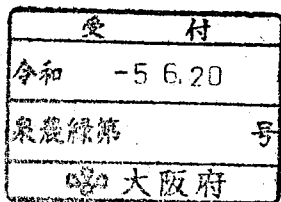 受付
令和 -5.6.20
泉農緑第 号
大阪府